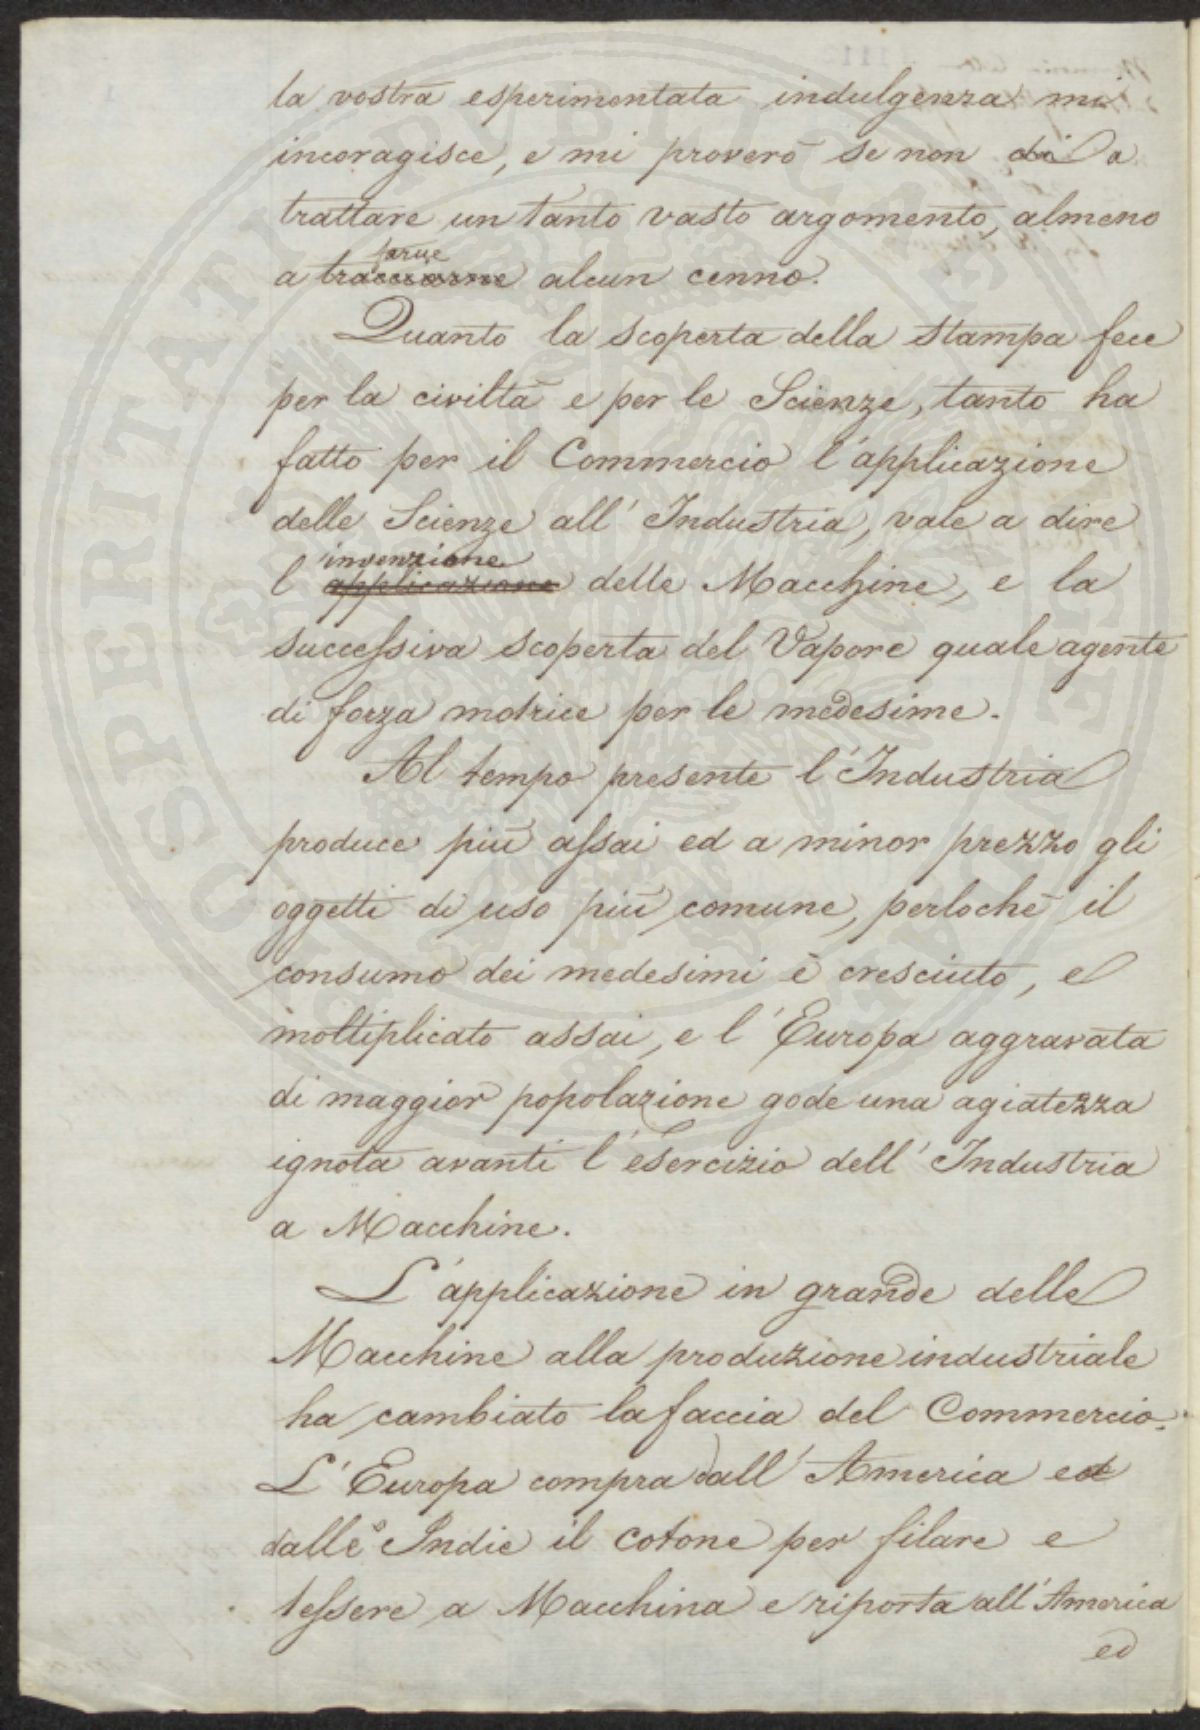 la vostra esperimentata indulgenza mi
incoragisce, e mi proverò se non di a
trattare un tanto vasto argomento, almeno
farne
a tracciarne alcun cenno.
Quanto la scoperta della stampa fece
per la civiltà e per le Scienze, tanto ha
fatto per il Commercio l'applicazione
delle Scienze all'Industria, vale a dire
invenzione
l' applicazione delle Macchine, e la
successiva scoperta del Vapore quale agente
di forza motrice per le medesime.
Al tempo presente l'Industria
produce più assai ed a minor prezzo gli
oggetti di uso più comune, perlochè il
consumo dei medesimi è cresciuto, e
moltiplicato assai, e l'Europa aggravata
di maggior popolazione gode una agiatezza
ignota avanti l'esercizio dell'Industria
a Macchine.
L'applicazione in grande delle
Macchine alla produzione industriale
ha cambiato la faccia del Commercio.
L'Europa compra dall'America ed
dalle Indie il cotone per filare e
tessere a Macchina e riporta all'America
ed
PROSPERITATI PUBLICAE AUGENDAE